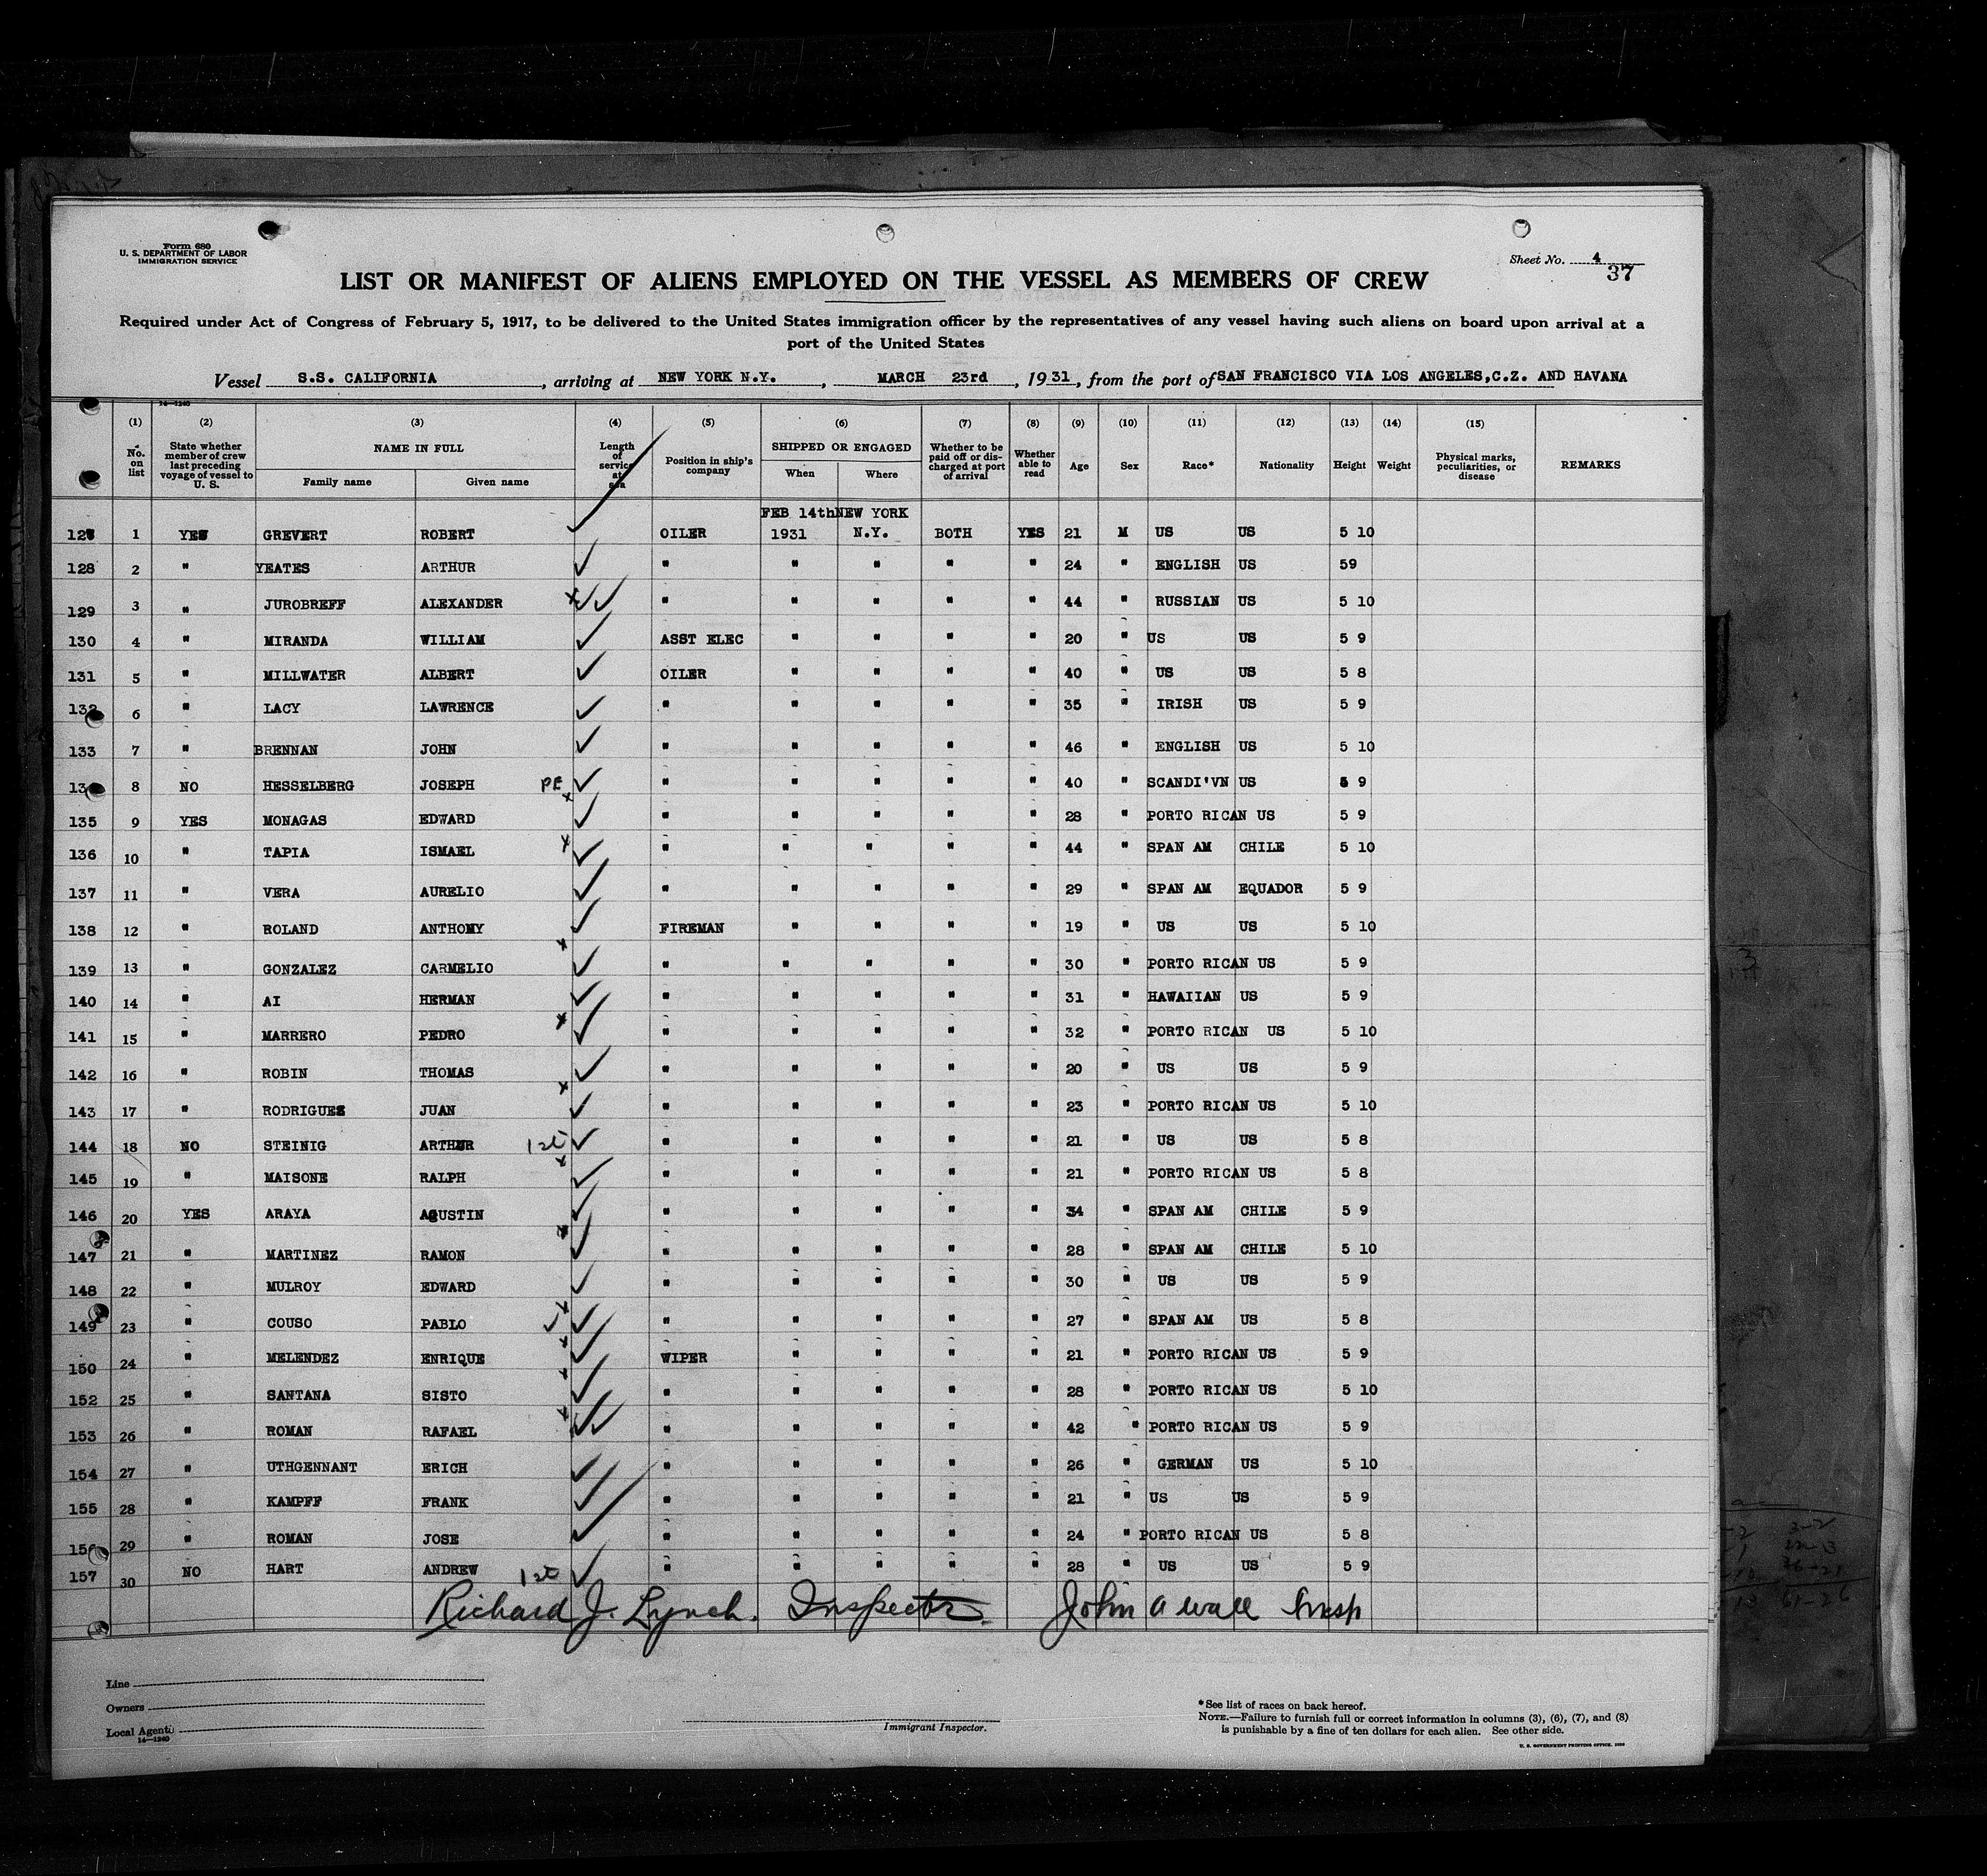 Form 680
U. S. DEPARTMENT OF LABOR
IMMIGRATION SERVICE
Sheet No. 4
37
LIST OR MANIFEST OF ALIENS EMPLOYED ON THE VESSEL AS MEMBERS OF CREW
Required under Act of Congress of February 5, 1917, to be delivered to the United States immigration officer by the representatives of any vessel having such aliens on board upon arrival at a
port of the United States
Vessel S.S. CALIFORNIA, arriving at NEW YORK N.Y., MARCH 23rd, 1931, from the port of SAN FRANCISCO VIA LOS ANGELES,C.Z. AND HAVANA
14—1240
(1) (2) (3) (4) (5) (6) (7) (8) (9) (10) (11) (12) (13) (14) (15)
No. on list State whether member of crew last preceding voyage of vessel to U. S. NAME IN FULL Family name Given name Length of service at sea Position in ship's company SHIPPED OR ENGAGED When Where Whether to be paid off or discharged at port of arrival Whether able to read Age Sex Race* Nationality Height Weight Physical marks, peculiarities, or disease REMARKS
FEB 14th NEW YORK
127 1 YES GREVERT ROBERT ✓ OILER 1931 N.Y. BOTH YES 21 M US US 5 10
128 2 " YEATES ARTHUR ✓ " " " " " 24 " ENGLISH US 59
129 3 " JUROBREFF ALEXANDER x✓✓ " " " " " 44 " RUSSIAN US 5 10
130 4 " MIRANDA WILLIAM ✓ ASST ELEC " " " " 20 " US US 5 9
131 5 " MILLWATER ALBERT ✓ OILER " " " " 40 " US US 5 8
132 6 " LACY LAWRENCE ✓ " " " " " 35 " IRISH US 5 9
133 7 " BRENNAN JOHN ✓ " " " " " 46 " ENGLISH US 5 10
13 8 NO HESSELBERG JOSEPH PE ✓ " " " " " 40 " SCANDI'VN US 5 9
135 9 YES MONAGAS EDWARD x ✓ " " " " " 28 " PORTO RICAN US 5 9
136 10 " TAPIA ISMAEL x ✓ " " " " " 44 " SPAN AM CHILE 5 10
137 11 " VERA AURELIO ✓ " " " " " 29 " SPAN AM EQUADOR 5 9
138 12 " ROLAND ANTHONY ✓ FIREMAN " " " " 19 " US US 5 10
139 13 " GONZALEZ CARMELIO x ✓ " " " " " 30 " PORTO RICAN US 5 9
140 14 " AI HERMAN ✓ " " " " " 31 " HAWAIIAN US 5 9
141 15 " MARRERO PEDRO x ✓ " " " " " 32 " PORTO RICAN US 5 10
142 16 " ROBIN THOMAS ✓ " " " " " 20 " US US 5 9
143 17 " RODRIGUES JUAN x ✓ " " " " " 23 " PORTO RICAN US 5 10
144 18 NO STEINIG ARTHUR 1st ✓ " " " " " 21 " US US 5 8
145 19 " MAISONE RALPH x ✓ " " " " " 21 " PORTO RICAN US 5 8
146 20 YES ARAYA AGUSTIN ✓ " " " " " 34 " SPAN AM CHILE 5 9
147 21 " MARTINEZ RAMON x ✓ " " " " " 28 " SPAN AM CHILE 5 10
148 22 " MULROY EDWARD ✓ " " " " " 30 " US US 5 9
149 23 " COUSO PABLO ✓ x ✓ " " " " " 27 " SPAN AM US 5 8
150 24 " MELENDEZ ENRIQUE x ✓ WIPER " " " " 21 " PORTO RICAN US 5 9
152 25 " SANTANA SISTO x ✓ " " " " " 28 " PORTO RICAN US 5 10
153 26 " ROMAN RAFAEL x ✓✓ " " " " " 42 " PORTO RICAN US 5 9
154 27 " UTHGENNANT ERICH ✓ " " " " " 26 " GERMAN US 5 10
155 28 " KAMPFF FRANK ✓ " " " " " 21 " US US 5 9
156 29 " ROMAN JOSE ✓ " " " " " 24 " PORTO RICAN US 5 8
157 30 NO HART ANDREW 1st ✓ " " " " " 28 " US US 5 9
Richard J. Lynch. Inspector John A Wall Insp
Line
Owners
Local Agents
14—1240
Immigrant Inspector.
*See list of races on back hereof.
NOTE.—Failure to furnish full or correct information in columns (3), (6), (7), and (8)
is punishable by a fine of ten dollars for each alien. See other side.
U. S. GOVERNMENT PRINTING OFFICE.